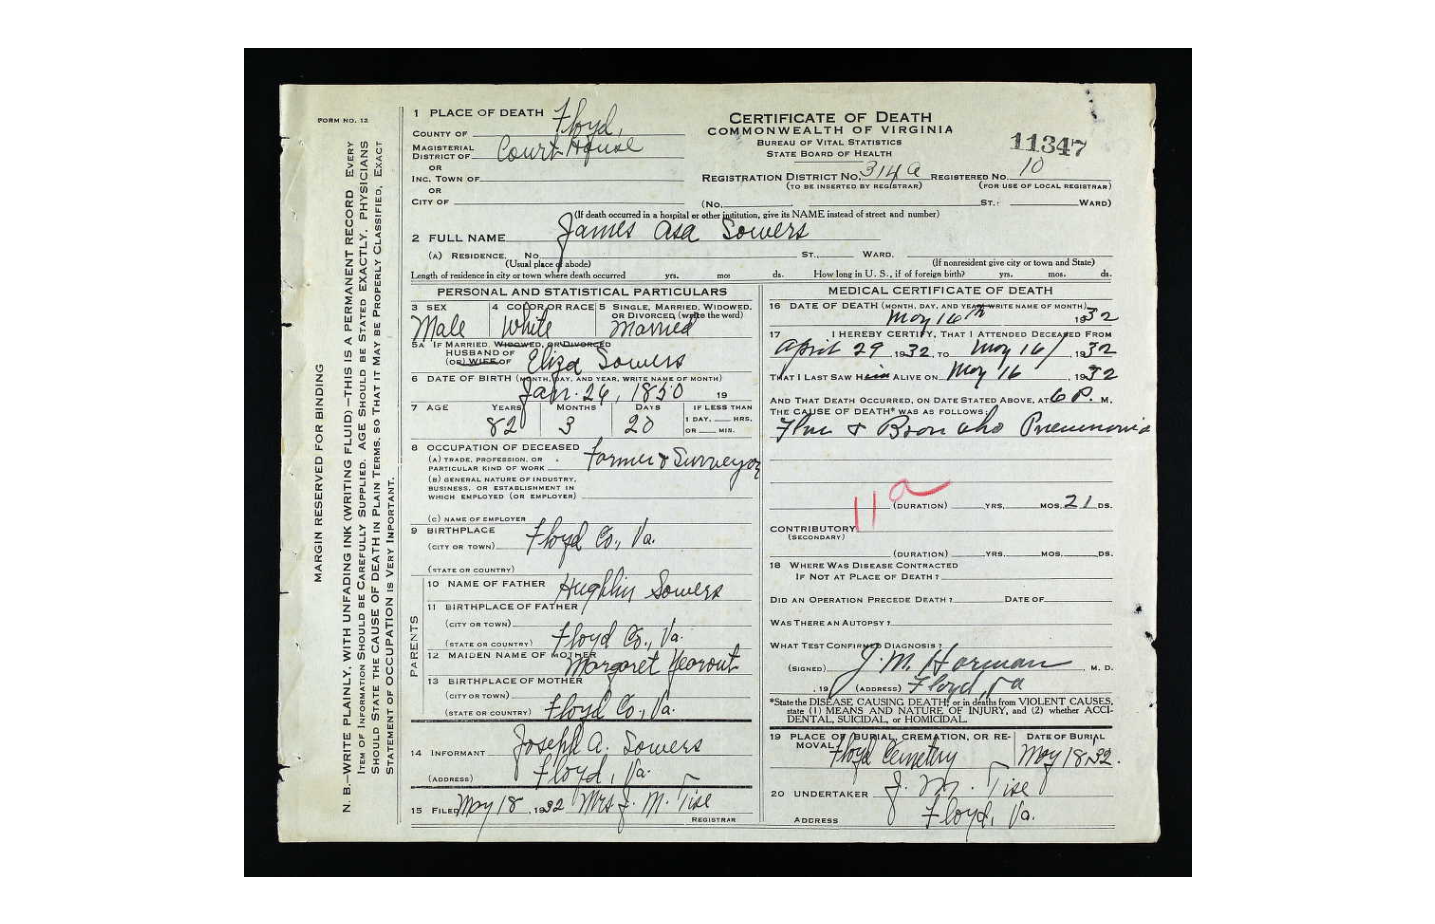 FORM NO. 12
MARGIN RESERVED FOR BINDING
N. B.—WRITE PLAINLY, WITH UNFADING INK (WRITING FLUID).—THIS IS A PERMANENT RECORD EVERY
ITEM OF INFORMATION SHOULD BE CAREFULLY SUPPLIED. AGE SHOULD BE STATED EXACTLY, PHYSICIANS
SHOULD STATE THE CAUSE OF DEATH IN PLAIN TERMS, SO THAT IT MAY BE PROPERLY CLASSIFIED, EXACT
STATEMENT OF OCCUPATION IS VERY IMPORTANT.
1 PLACE OF DEATH
COUNTY OF Floyd,
MAGISTERIAL DISTRICT OF Court House
OR
INC. TOWN OF
OR
CITY OF
CERTIFICATE OF DEATH
COMMONWEALTH OF VIRGINIA
BUREAU OF VITAL STATISTICS
STATE BOARD OF HEALTH
11347
REGISTRATION DISTRICT NO. 314a REGISTERED NO. 10
(TO BE INSERTED BY REGISTRAR) (FOR USE OF LOCAL REGISTRAR)
(NO. ST.; WARD)
(If death occurred in a hospital or other institution, give its NAME instead of street and number)
2 FULL NAME James Asa Sowers
(A) RESIDENCE. NO. ST., WARD.
(Usual place of abode) (If nonresident give city or town and State)
Length of residence in city or town where death occurred yrs. mos ds. How long in U. S., if of foreign birth? yrs. mos. ds.
PERSONAL AND STATISTICAL PARTICULARS
3 SEX Male
4 COLOR OR RACE White
5 SINGLE, MARRIED, WIDOWED, OR DIVORCED, (write the word) Married
5A IF MARRIED, WIDOWED, OR DIVORCED
HUSBAND OF
(OR) WIFE OF Eliza Sowers
6 DATE OF BIRTH (MONTH, DAY, AND YEAR, WRITE NAME OF MONTH)
Jan. 26, 1850 19
7 AGE YEARS 82 MONTHS 3 DAYS 20 IF LESS THAN 1 DAY, HRS. OR MIN.
8 OCCUPATION OF DECEASED
(A) TRADE, PROFESSION, OR PARTICULAR KIND OF WORK Farmer & Surveyor
(B) GENERAL NATURE OF INDUSTRY, BUSINESS, OR ESTABLISHMENT IN WHICH EMPLOYED (OR EMPLOYER)
(C) NAME OF EMPLOYER
9 BIRTHPLACE
(CITY OR TOWN) Floyd Co., Va.
(STATE OR COUNTRY)
PARENTS
10 NAME OF FATHER Hughlin Sowers
11 BIRTHPLACE OF FATHER
(CITY OR TOWN)
(STATE OR COUNTRY) Floyd Co., Va.
12 MAIDEN NAME OF MOTHER Margaret Yearout
13 BIRTHPLACE OF MOTHER
(CITY OR TOWN)
(STATE OR COUNTRY) Floyd Co., Va.
14 INFORMANT Joseph A. Sowers
(ADDRESS) Floyd, Va.
15 FILED May 18, 1932 Mrs J. M. Tise
REGISTRAR
MEDICAL CERTIFICATE OF DEATH
16 DATE OF DEATH (MONTH, DAY, AND YEAR WRITE NAME OF MONTH)
May 16th 1932
17 I HEREBY CERTIFY, THAT I ATTENDED DECEASED FROM
April 29, 1932, TO May 16, 1932
THAT I LAST SAW HIM ALIVE ON May 16, 1932
AND THAT DEATH OCCURRED, ON DATE STATED ABOVE, AT 6 P. M.
THE CAUSE OF DEATH* WAS AS FOLLOWS:
Flu & Broncho Pneumonia
11a
(DURATION) YRS. MOS. 21 DS.
CONTRIBUTORY
(SECONDARY)
(DURATION) YRS. MOS. DS.
18 WHERE WAS DISEASE CONTRACTED
IF NOT AT PLACE OF DEATH?
DID AN OPERATION PRECEDE DEATH? DATE OF
WAS THERE AN AUTOPSY?
WHAT TEST CONFIRMED DIAGNOSIS?
(SIGNED) J. M. Harman M. D.
, 19 (ADDRESS) Floyd, Va
*State the DISEASE CAUSING DEATH, or in deaths from VIOLENT CAUSES,
state (1) MEANS AND NATURE OF INJURY, and (2) whether ACCI-
DENTAL, SUICIDAL, or HOMICIDAL.
19 PLACE OF BURIAL, CREMATION, OR RE-
MOVAL Floyd Cemetery
DATE OF BURIAL
May 18 32.
20 UNDERTAKER J. M. Tise
ADDRESS Floyd, Va.